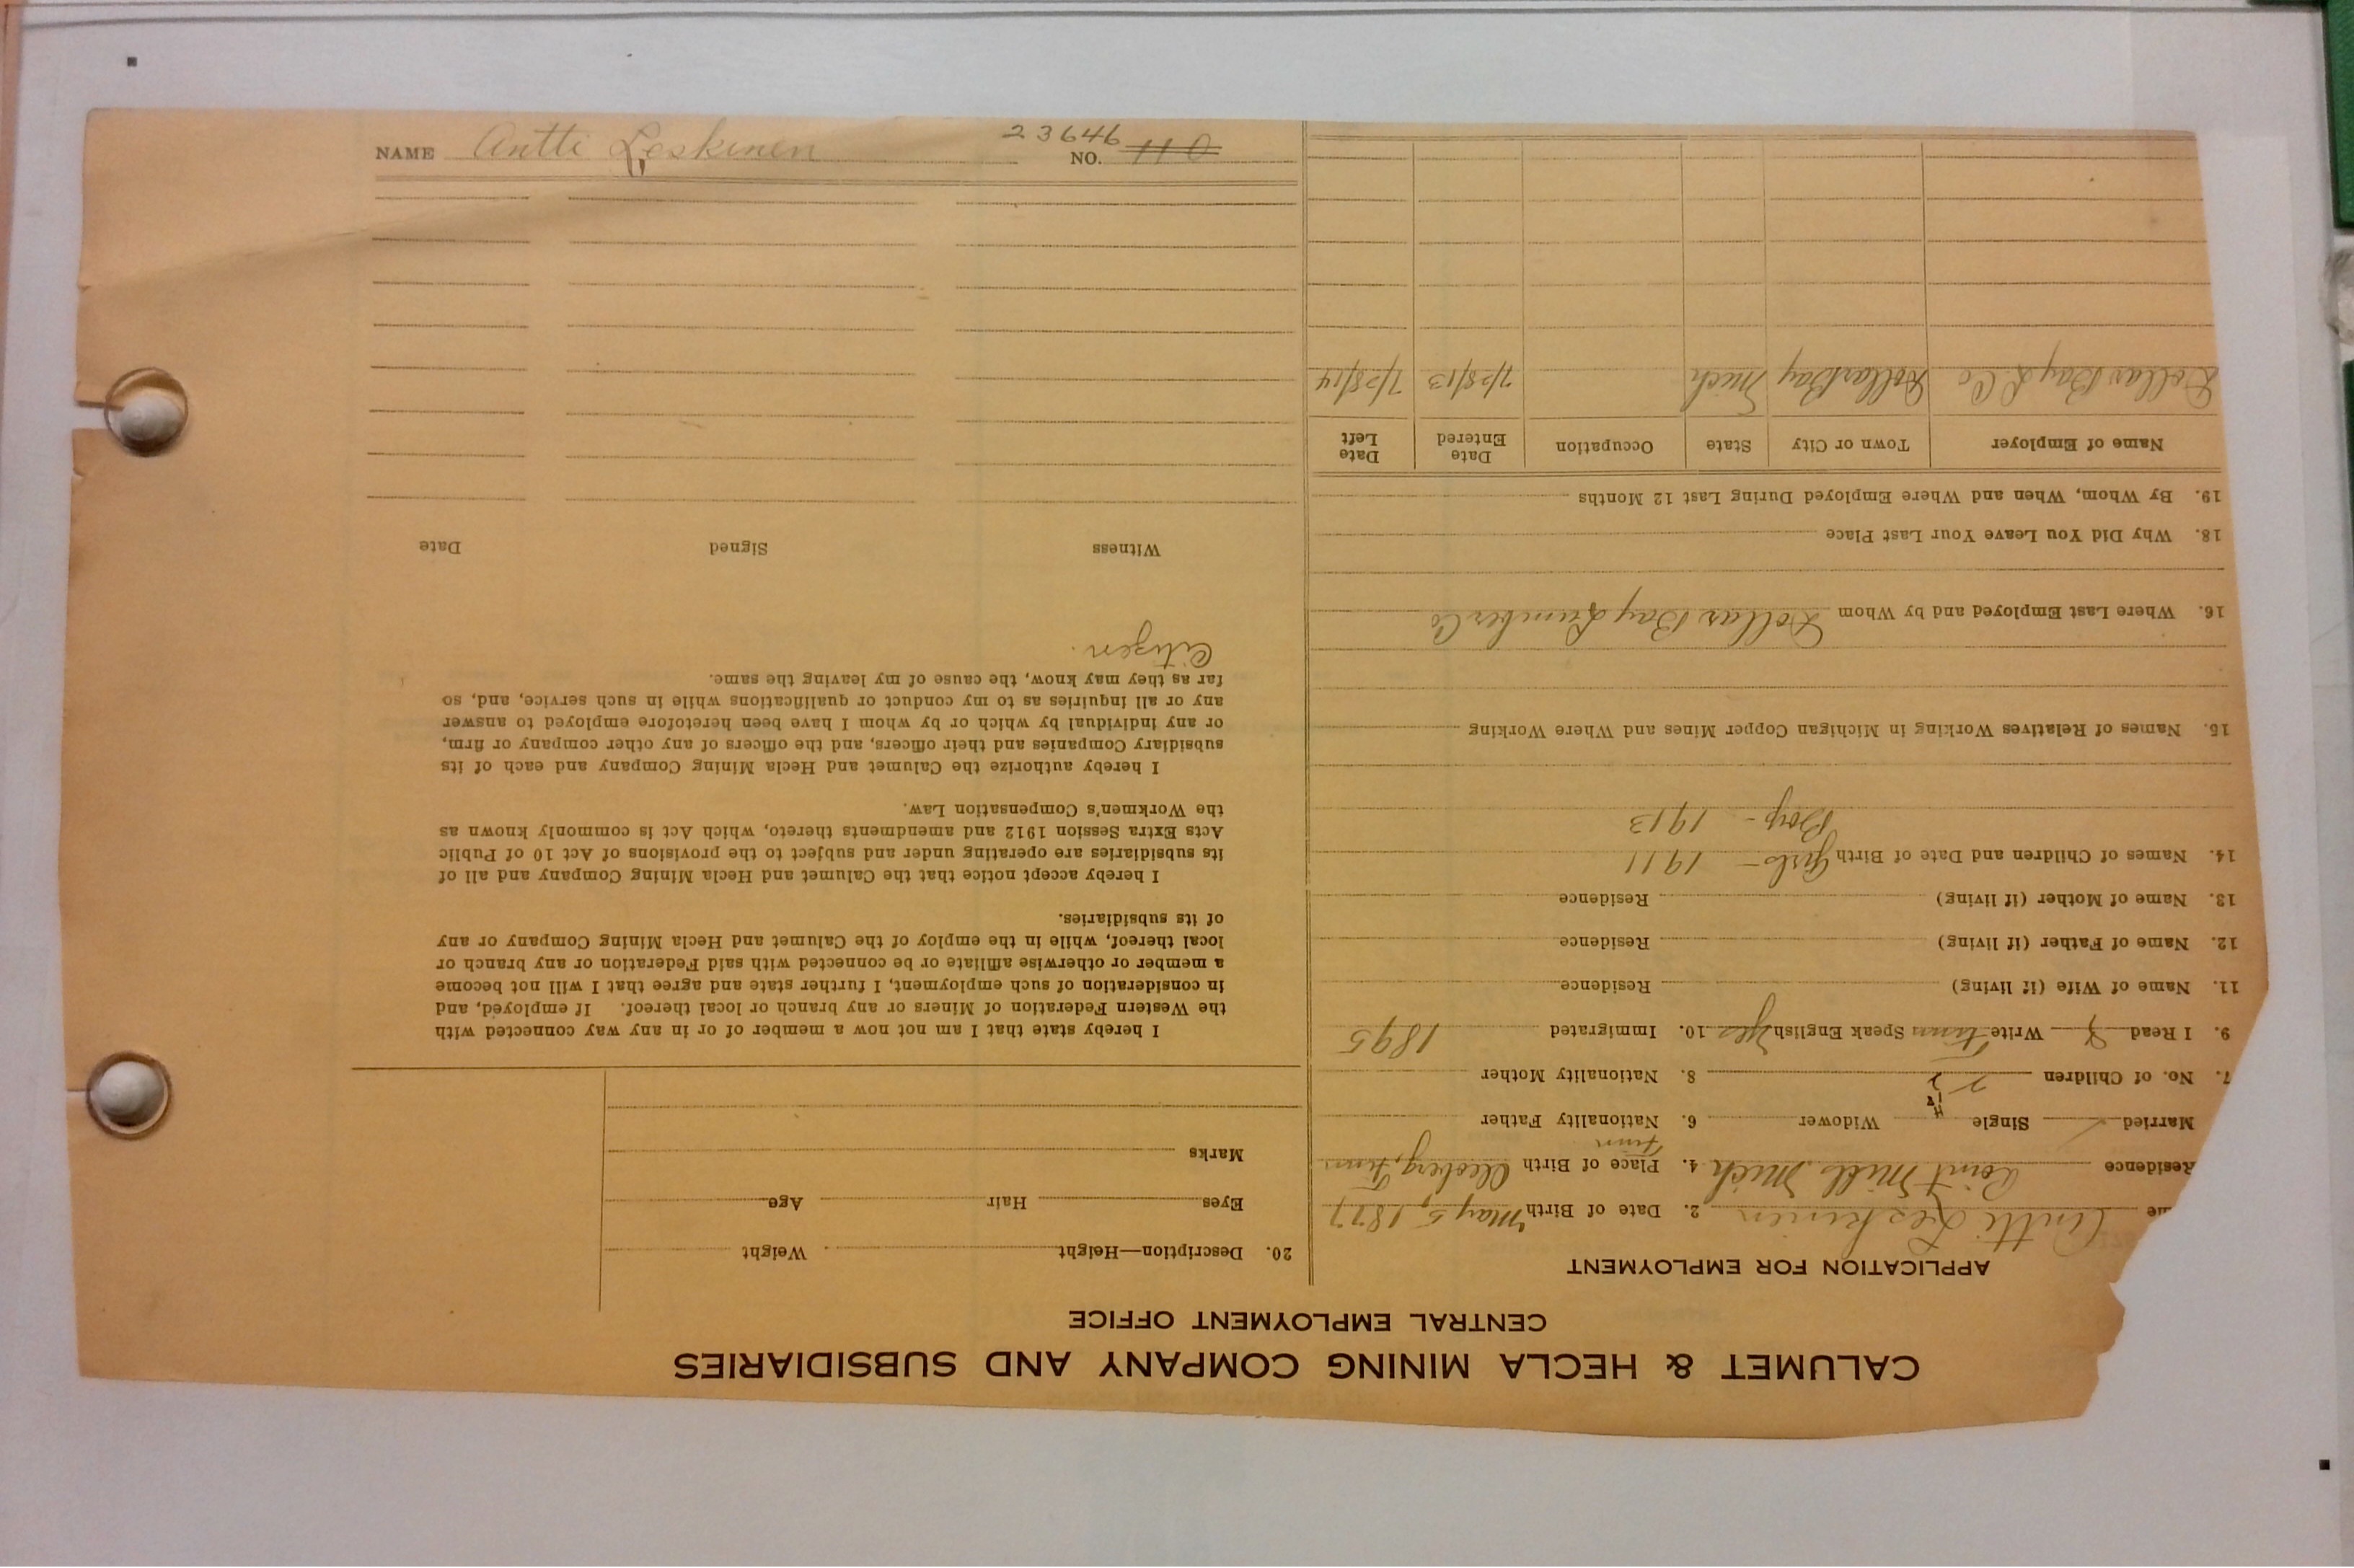 CALUMET & HECLA MINING COMPANY AND SUBSIDIARIES
CENTRAL EMPLOYMENT OFFICE
APPLICATION FOR EMPLOYMENT
me Antti Leskinen 2. Date of Birth May 5, 1877
Residence Point Mills Mich 4. Place of Birth Uleoberg, Finn
Married ✓ Single Widower 6. Nationality Father Finn
7. No. of Children 2 8. Nationality Mother
9. I Read & Write Finn Speak English Yes 10. Immigrated 1895
11. Name of Wife (if living) Residence
12. Name of Father (if living) Residence
13. Name of Mother (if living) Residence
14. Names of Children and Date of Birth Girls - 1911
Boy - 1913
15. Names of Relatives Working in Michigan Copper Mines and Where Working
16. Where Last Employed and by Whom Dollar Bay Lumber Co
18. Why Did You Leave Your Last Place
19. By Whom, When and Where Employed During Last 12 Months
Name of Employer Town or City State Occupation Date Entered Date Left
Dollar Bay L. Co Dollar Bay Mich 7/28/13 7/28/14
20. Description—Height Weight
Eyes Hair Age
Marks
I hereby state that I am not now a member of or in any way connected with
the Western Federation of Miners or any branch or local thereof. If employed, and
in consideration of such employment, I further state and agree that I will not become
a member or otherwise affiliate or be connected with said Federation or any branch or
local thereof, while in the employ of the Calumet and Hecla Mining Company or any
of its subsidiaries.
I hereby accept notice that the Calumet and Hecla Mining Company and all of
its subsidiaries are operating under and subject to the provisions of Act 10 of Public
Acts Extra Session 1912 and amendments thereto, which Act is commonly known as
the Workmen's Compensation Law.
I hereby authorize the Calumet and Hecla Mining Company and each of its
subsidiary Companies and their officers, and the officers of any other company or firm,
or any individual by which or by whom I have been heretofore employed to answer
any or all inquiries as to my conduct or qualifications while in such service, and, so
far as they may know, the cause of my leaving the same.
Citizen.
Witness Signed Date
NAME Antti Leskinen NO. 110 23646